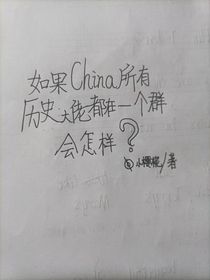 如果China所有
历史大佬都在一个群
会怎样?
小樱桃/著